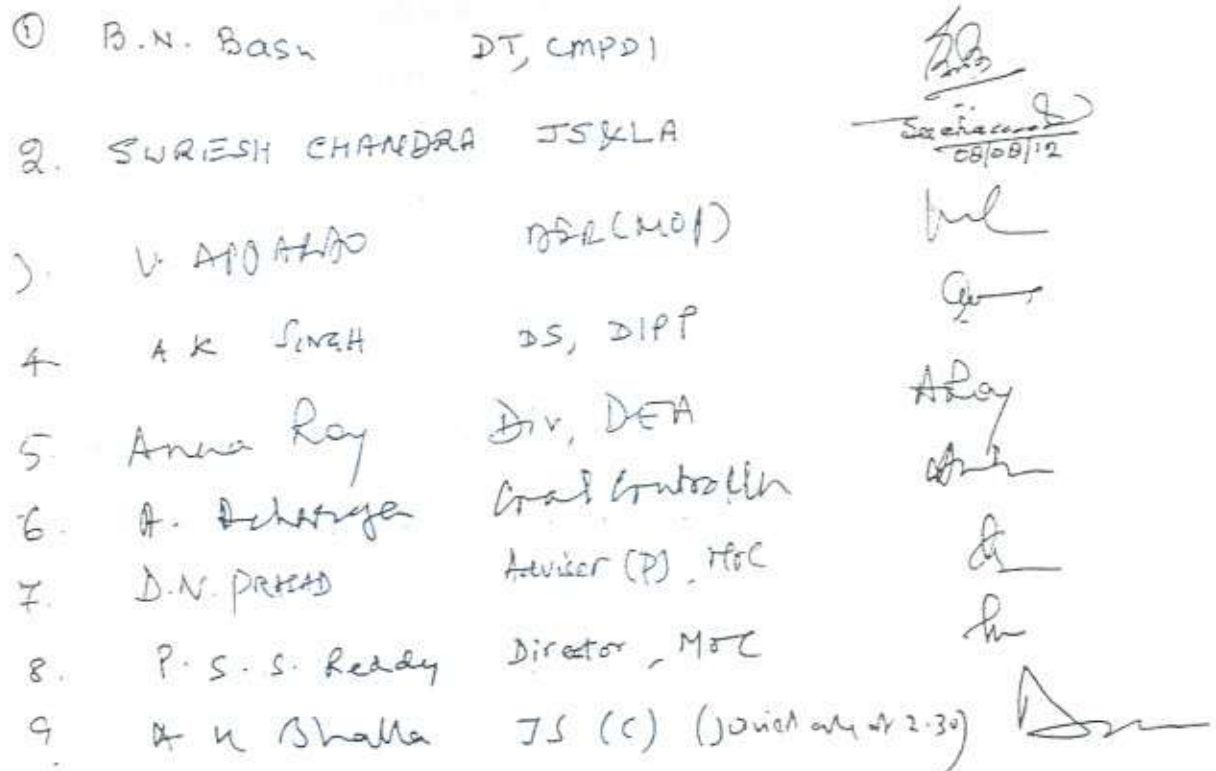 ① B.N. Basu DT, CMPDI
2. SURESH CHANDRA JS&LA 08/08/12
3. V. APPARAO (MOP)
4 A K SINGH DS, DIPP
5 Anna Roy Dir, DEA ARoy
6. A. Coal Controller
7. D.N. PRASAD Adviser (P), MoC
8. P.S.S. Reddy Director, MoC
9. A K Bhalla JS (C) (Joined only at 2.30)